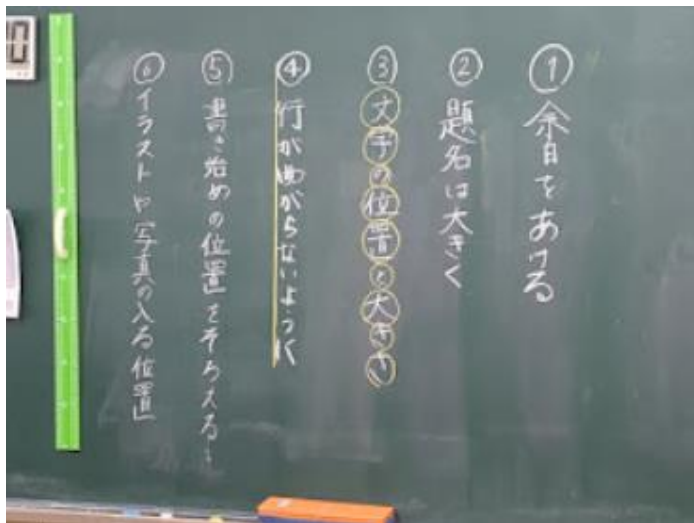 ① 余白をあける
② 題名は大きく
③ 文字の位置と大きさ
④ 行が曲がらないように
⑤ 書き始めの位置をそろえる
⑥ イラストや写真の入る位置